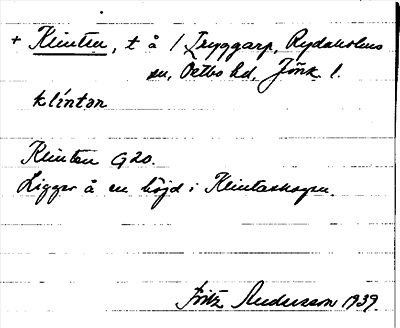 + Klinten, t å 1 Tryggarp, Rydaholms
sn, Östbo hd, Jönk. l.
klíntən
Klinten G20.
Ligger å en höjd i Klintaskogen.
Fritz Andersson 1939.